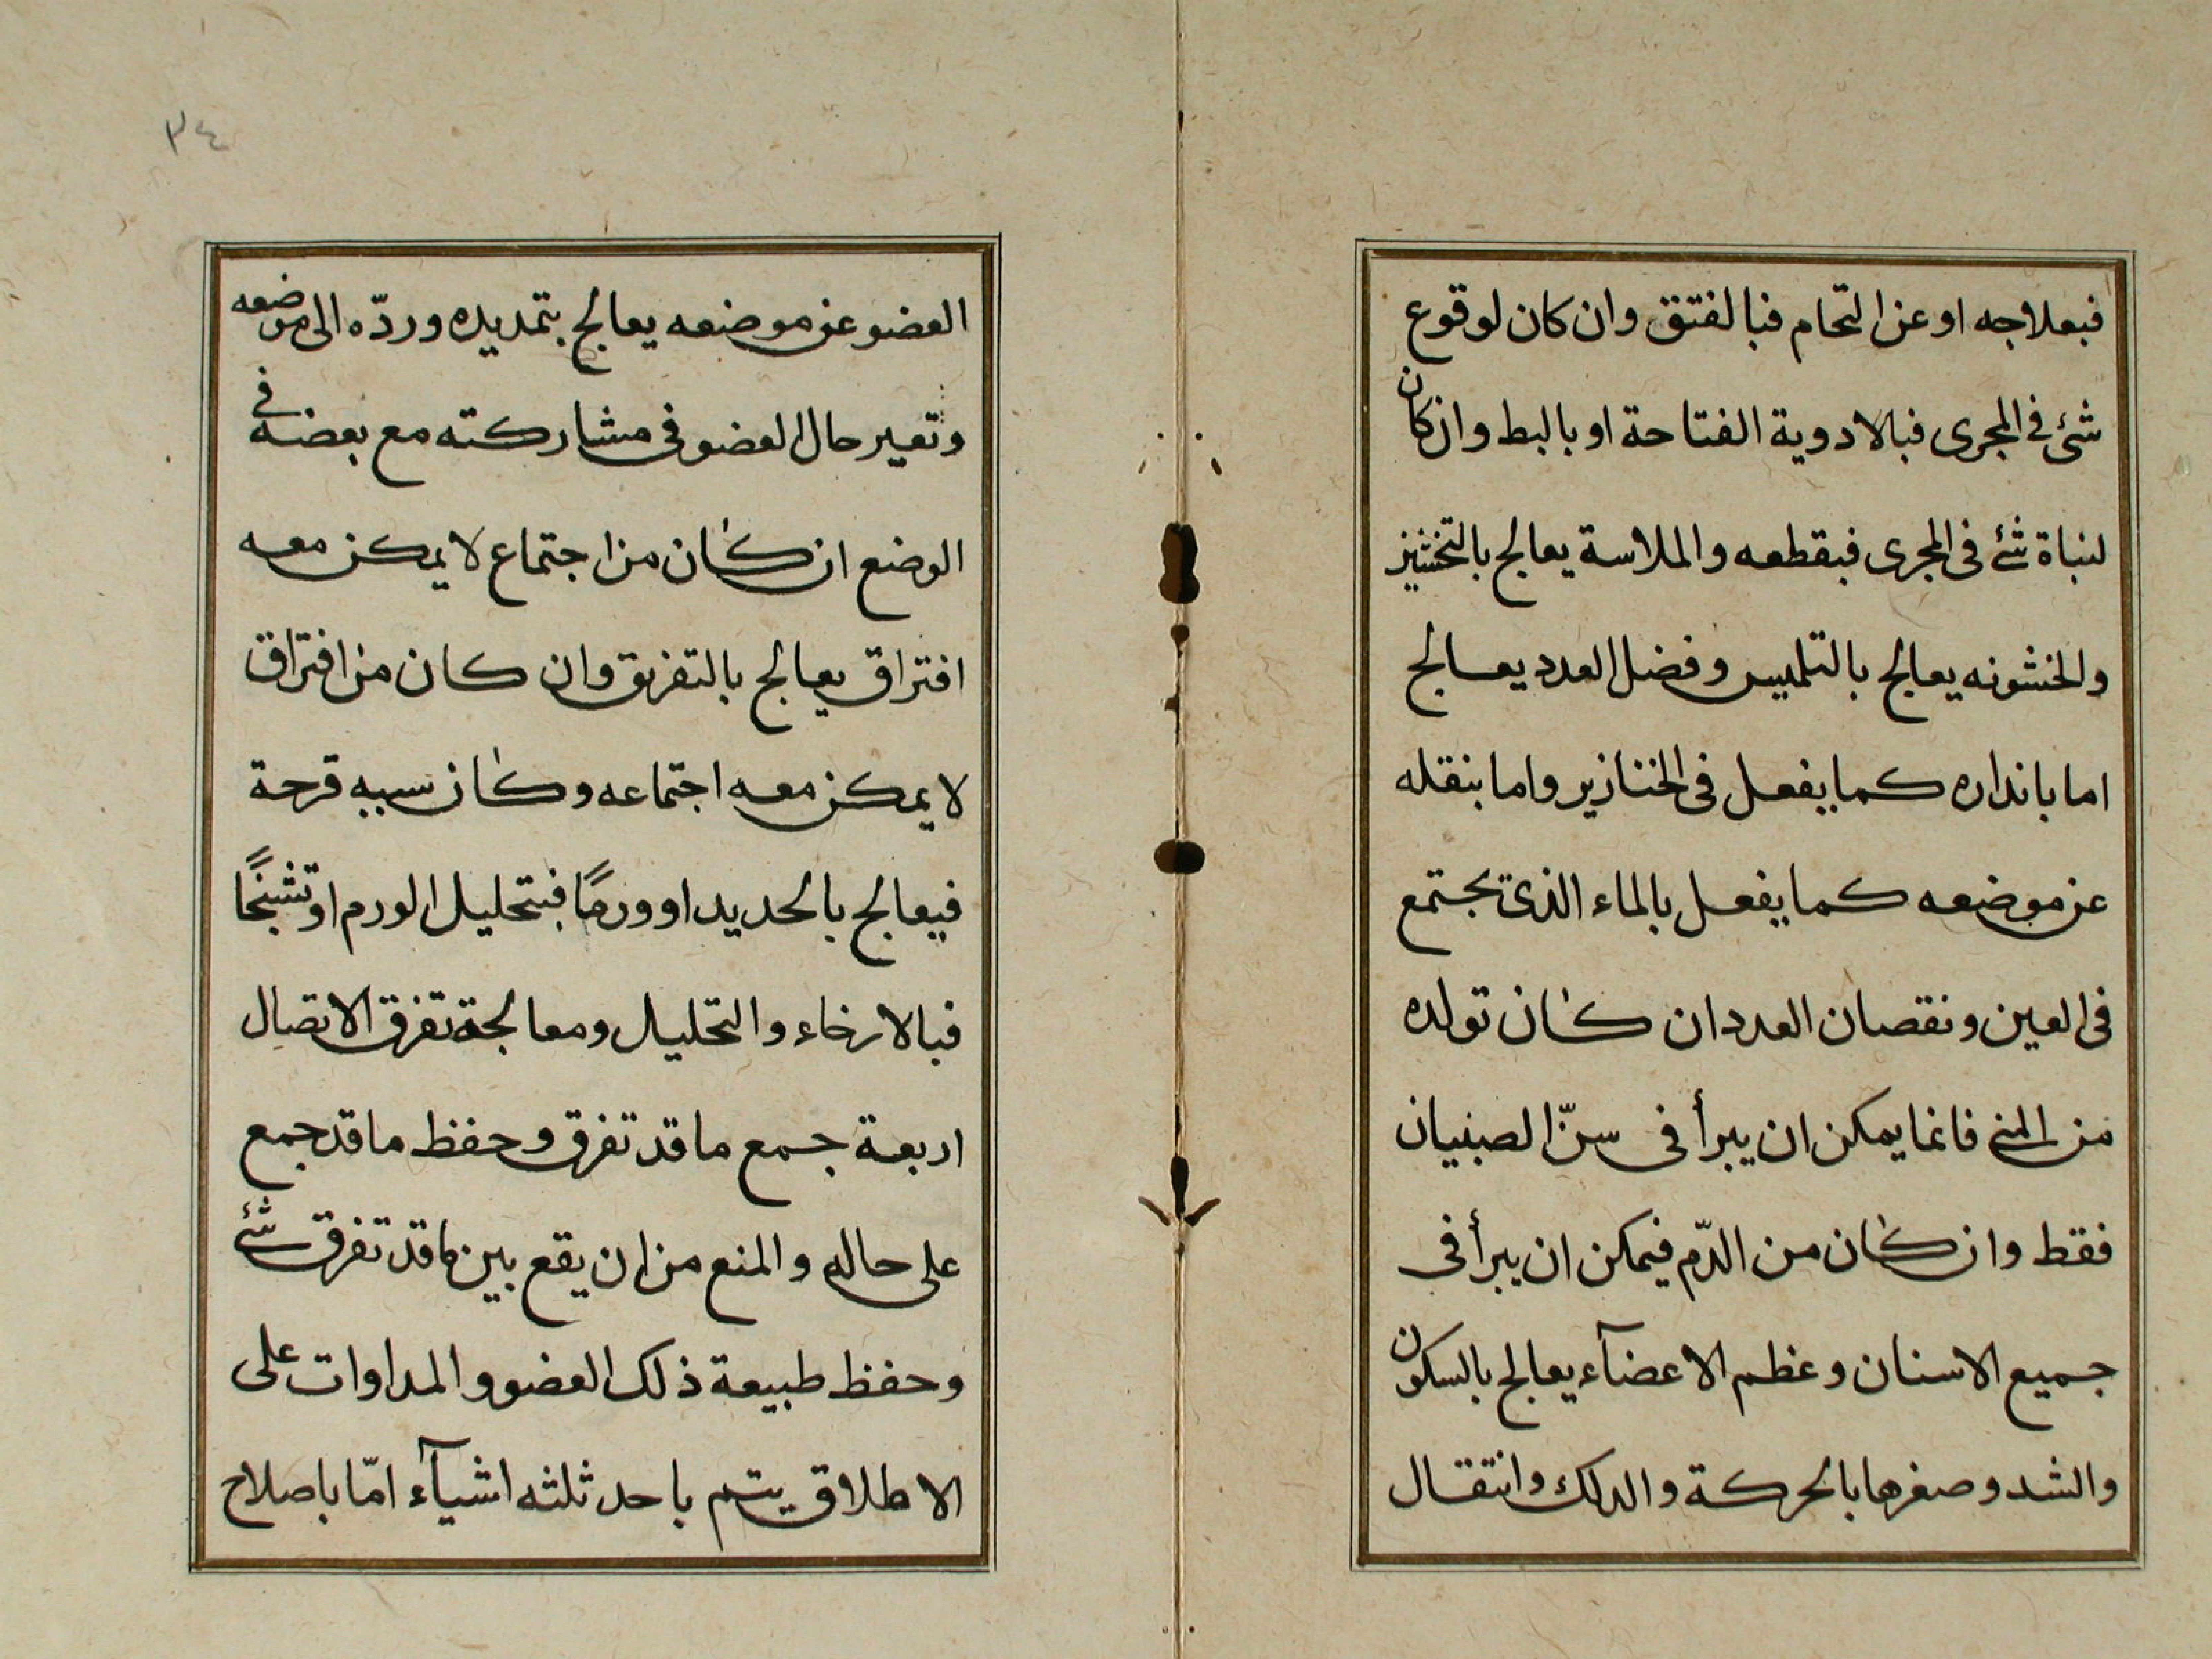 فبعلاجه او عن التحام فبالفتق وان كان لوقوع
شئ فى المجرى فبالادوية الفتاحة او بالبط وان كان
لنباة شئ فى المجرى فبقطعه والملاسة يعالج بالتخشين
والخشونه يعالج بالتلميس وفضل العدد يعالج
اما باندازه كما يفعل فى الخنازير واما بنقله
عن موضعه كما يفعل بالماء الذى يجتمع
فى العين ونقصان العدد ان كان تولده
من المنى فانما يمكن ان يبرأ فى سنّ الصبيان
فقط وان كان من الدّم فيمكن ان يبرأ فى
جميع الاسنان وعظم الاعضآء يعالج بالسكون
والشد وصغرها بالحركة والدلك وانتقال
٣٤
العضو عن موضعه يعالج بتمديده وردّه الى موضعه
وتغير حال العضو فى مشاركته مع بعضه فى
الوضع ان كان من اجتماع لا يمكن معه
افتراق يعالج بالتفريق وان كان من افتراق
لا يمكن معه اجتماعه وكان سببه قرحة
فيعالج بالحديد او ورمًا فبتحليل الورم او تشنجًا
فبالارخاء والتحليل ومعالجة تفرق الاتصال
اربعة جمع ما قد تفرق وحفظ ما قد جمع
على حاله والمنع من ان يقع بين ما قد تفرق شئ
وحفظ طبيعة ذلك العضو والمداوات على
الاطلاق يتم باحد ثلثه اشيآء امّا باصلاح